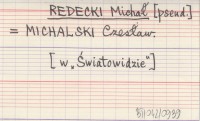 REDECKI Michał [pseud.]
= MICHALSKI Czesław.
[w „Światowidzie”]